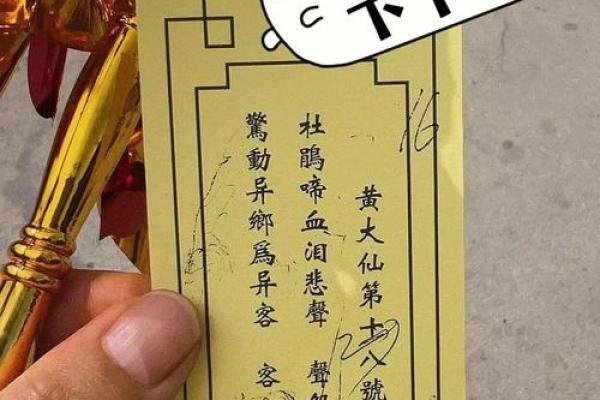 黃大仙第十八號
杜鵑啼血泪悲聲 聲
驚動异鄉爲异客 客